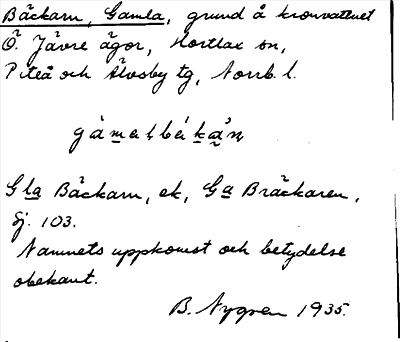 Bäckarn, Gamla, grund å kronvattnet
Ö. Jävre ägor, Hortlax sn,
Piteå och Älvsby tg, Norrb. l.
Gla Bäckarn, ek, Ga Bräckaren,
Sj. 103.
Namnets uppkomst och betydelse
obekant.
B. Nygren 1935.